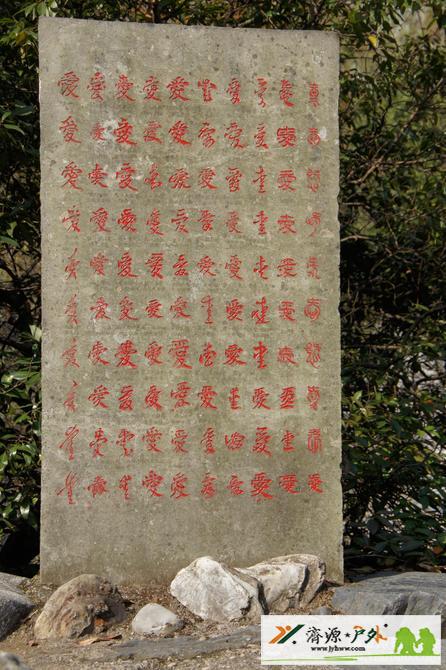 愛愛愛愛愛愛愛愛愛愛
愛愛愛愛愛愛愛愛愛愛
愛愛愛愛愛愛愛愛愛愛
愛愛愛愛愛愛愛愛愛愛
愛愛愛愛愛愛愛愛愛愛
愛愛愛愛愛愛愛愛愛愛
愛愛愛愛愛愛愛愛愛愛
愛愛愛愛愛愛愛愛愛愛
愛愛愛愛愛愛愛愛愛愛
愛愛愛愛愛愛愛愛愛愛
濟源★户外
www.jyhww.com